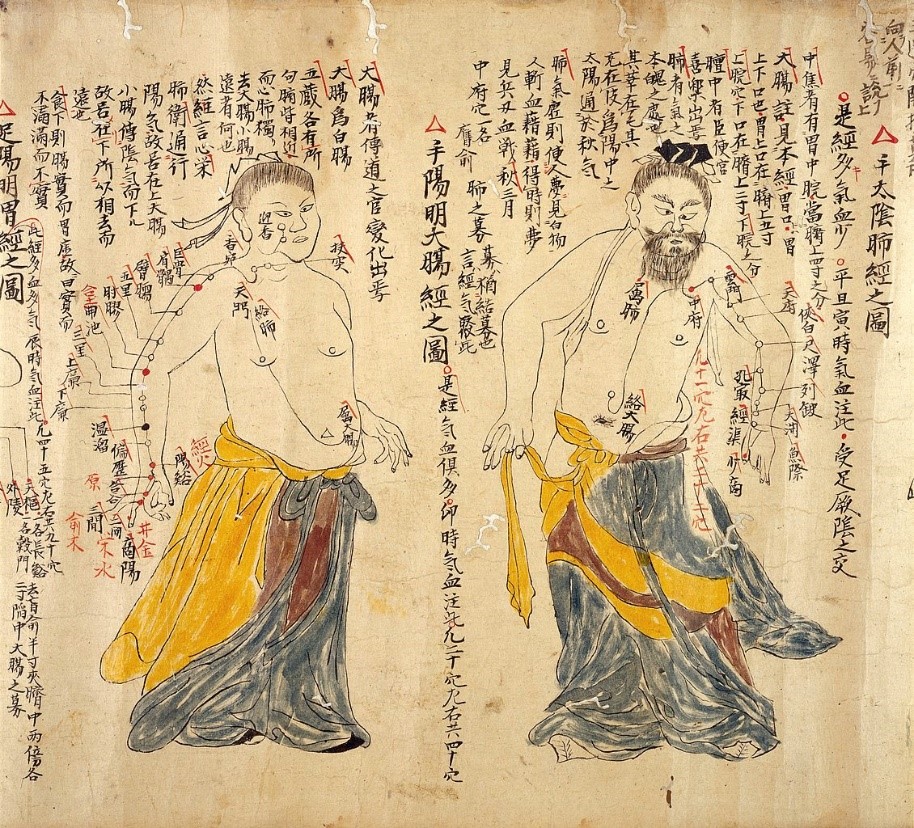 向人前二
△手太陰肺經之圖
○是經多氣血少○平旦寅時氣血注此。受足厥陰之交
中焦者有胃中脘當臍上四寸之分
大腸註見本經胃口胃
上下口也胃上口在臍上五寸
上脘穴下口在臍上二寸下脘之分
膻中者臣使官
喜樂出焉
肺者氣之
本魄之處也
其華在毛其
充在皮為陽中之
太陽通於秋氣
肺氣虛則使人夢見白物
人斬血藉藉得時則夢
見兵刃血戰秋三月
中府穴名
膺俞
肺之募
募猶結募也
言經氣聚此
雲門
中府
天府
俠白
尺澤
列缺
孔最
經渠
少商
太渕
魚際
屬肺
絡大腸
凡十一穴左右共二十二穴
△手陽明大腸經之圖
○是經氣血俱多卯時氣血注此凡二十穴左右共四十穴
大腸者傳道之官變化出焉
大腸為白腸
五藏各有所
句腸將相近
而心肺獨
去大腸小腸
遠者何也
然經言心榮
肺衛通行
陽氣故居在上大腸
小腸傳陰氣而下
故居在下所以相去而
遠也
食下則腸實而胃虛故曰實而
不滿滿而不實
扶突
迎香
天門
絡肺
屬大腸
巨骨
肩髃
臂臑
五里
肘髎
曲池
三里
上廉
下廉
溫溜
偏歷
陽谿
經火
合谷
原
三間
俞木
二間
滎水
商陽
井金
△足陽明胃經之圖
此經多血多氣辰時氣血注此凡四十五穴左右共九十穴
天樞一名長谿一名穀門
去肓俞半寸夾臍中兩傍各
二寸陷中大腸之募
外陵